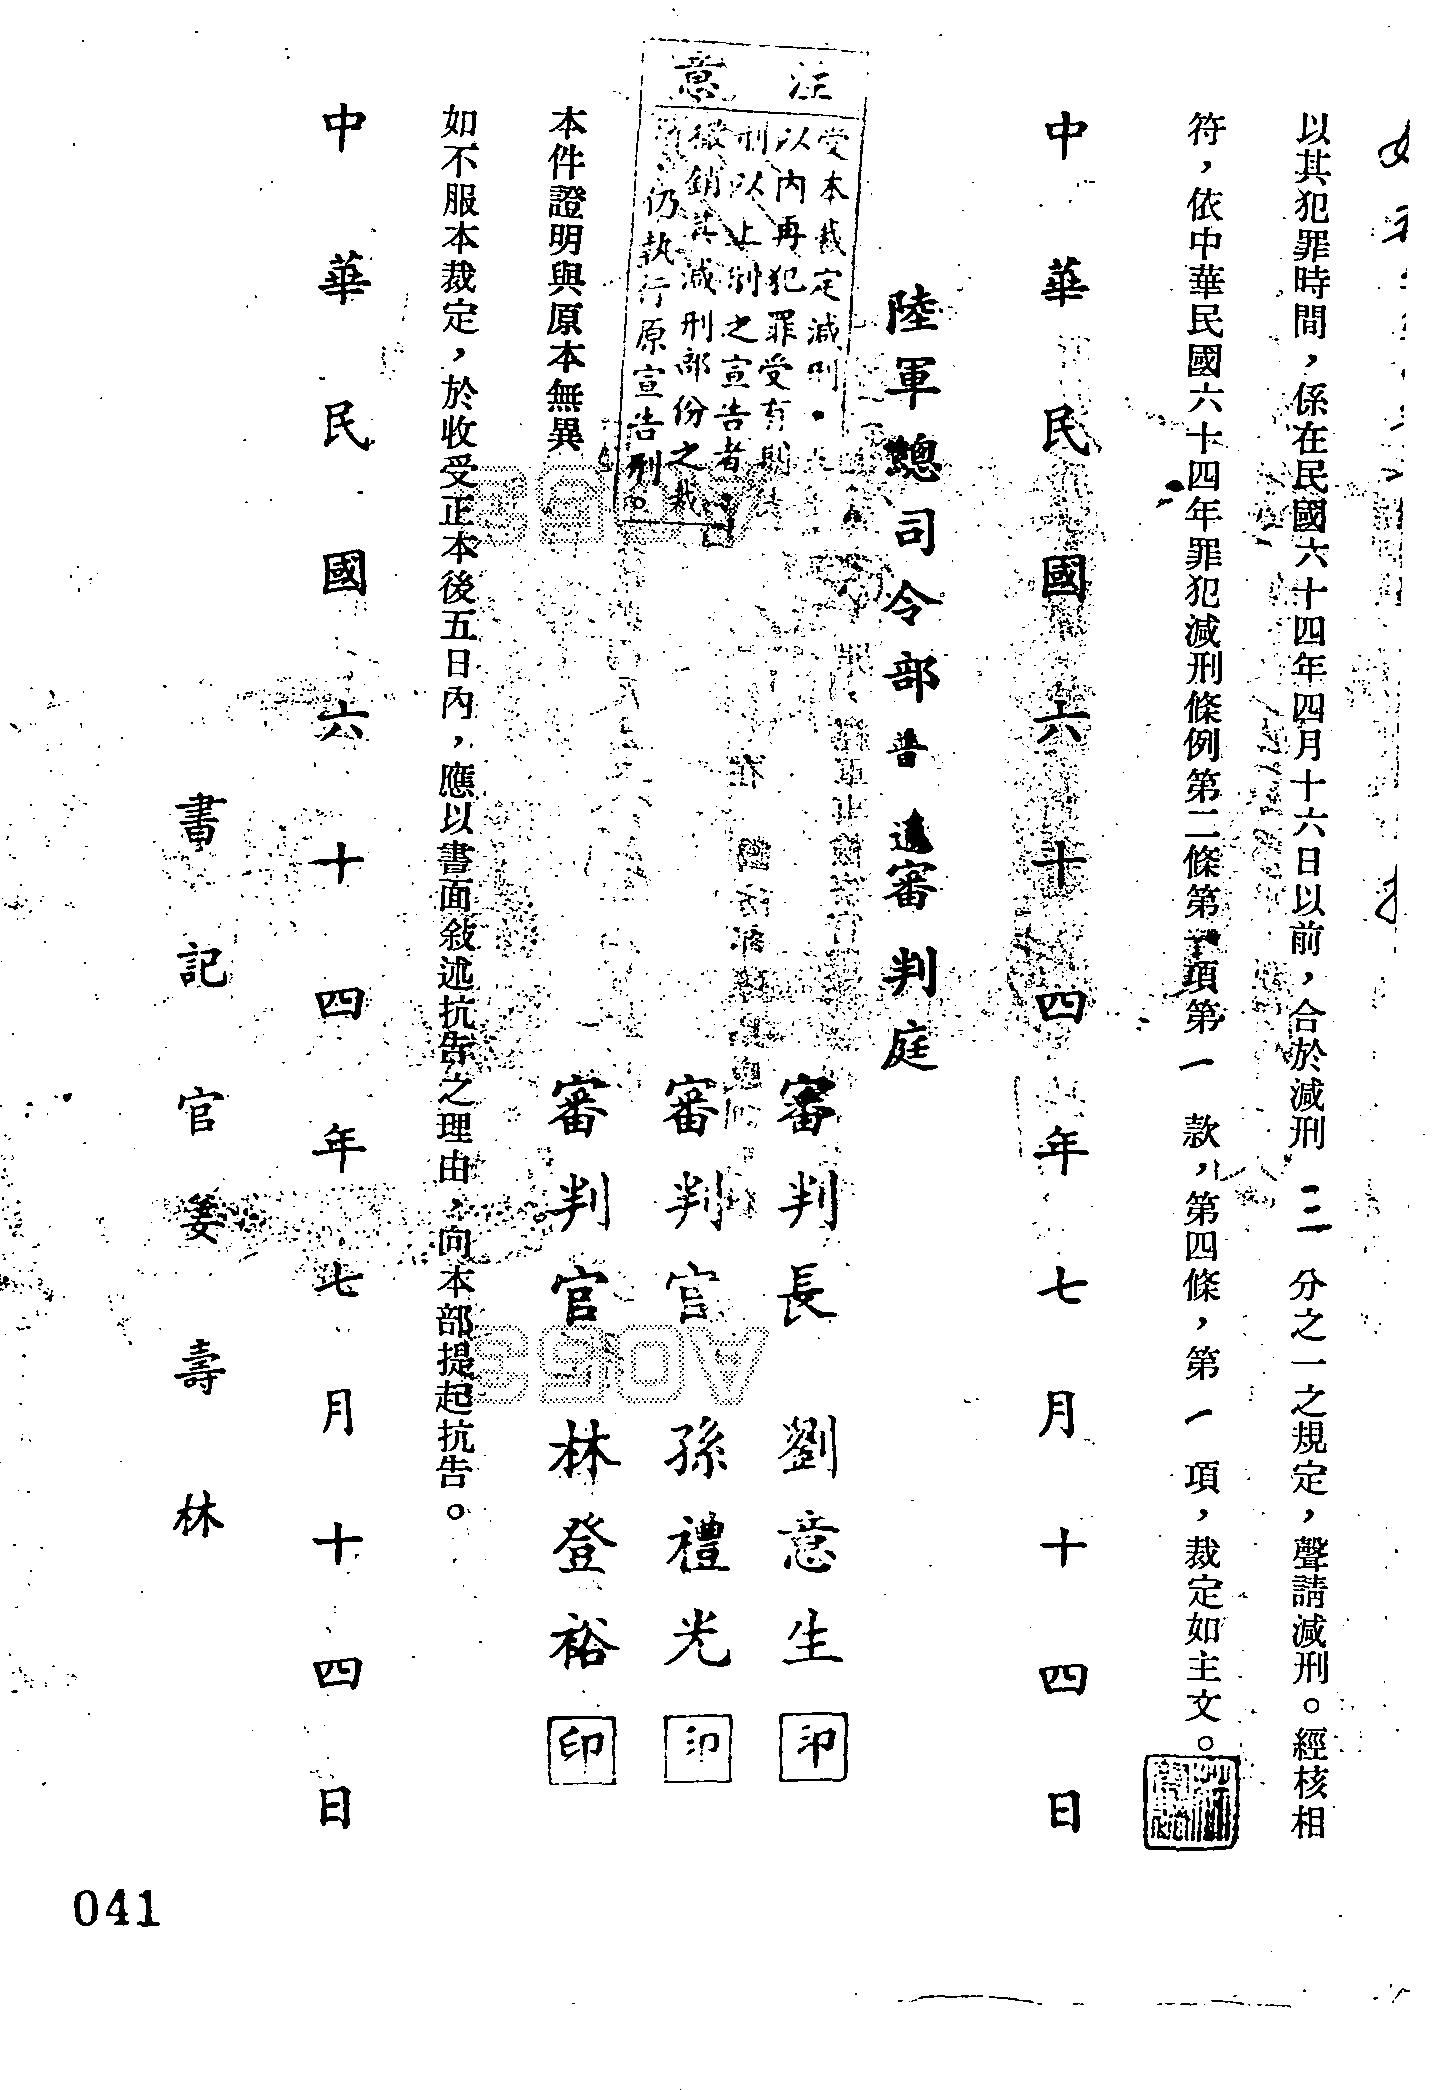 以其犯罪時間，係在民國六十四年四月十六日以前，合於減刑三分之一之規定，聲請減刑。經核相
符，依中華民國六十四年罪犯減刑條例第二條第一項第一款，第四條，第一項，裁定如主文。
中華民國六十四年七月十四日
陸軍總司令部普通審判庭
審判長劉意生印
審判官孫禮光印
審判官林登裕印
注意
受本裁定減刑
以內再犯罪受有期
刑以上刑之宣告者
撤銷其減刑部份之裁
仍執行原宣告刑。
本件證明與原本無異
如不服本裁定，於收受正本後五日內，應以書面敍述抗告之理由，向本部提起抗告。
中華民國六十四年七月十四日
書記官姜壽林
A053
041